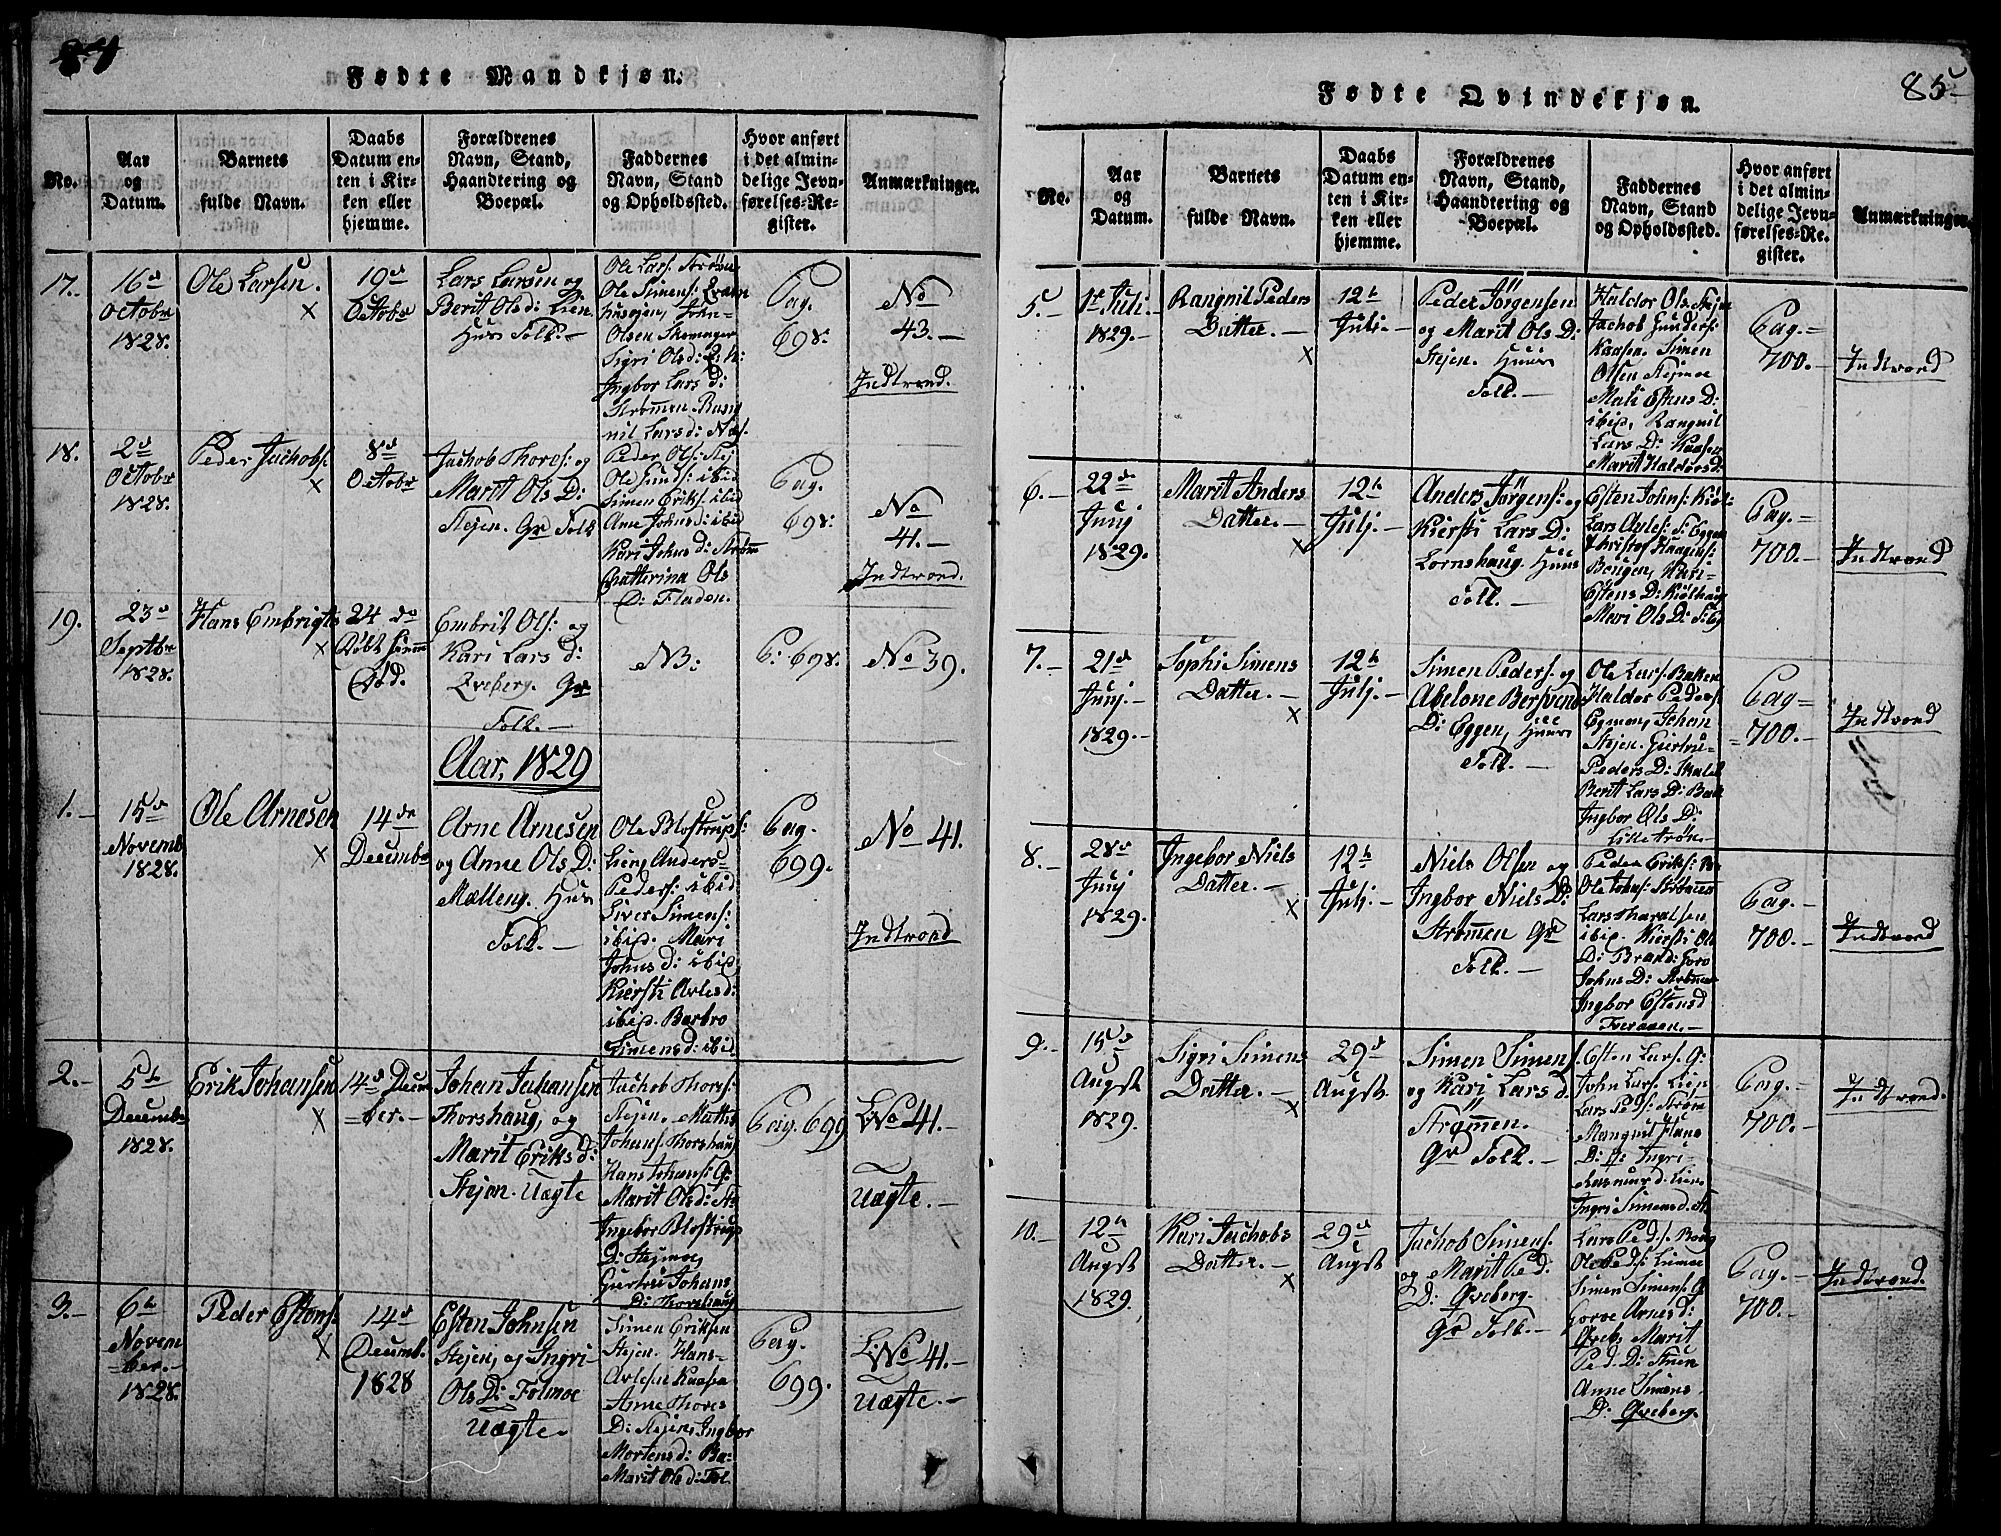 84
Fødte Mandkjøn.
No.
Aar
og
Datum.
Barnets
fulde Navn.
Daabs
Datum en-
ten i Kir-
ken eller
hjemme.
Forældrenes
Navn, Stand,
Haandtering og
Boepæl.
Faddernes
Navn, Stand
og Opholdssted.
Hvor anført
i det almin-
delige Jevn-
førelses-Re-
gister.
Anmærkninger.
17.
16d
Octobr
1828.
Ole Larsen.
x
19d
Octobr
Lars Larsen og
Berit Olsd: Lien.
Huus Folk.-
Ole Lars: Strøm
Ole Simens:
John
Olsen
Sigri Olsd:
Ingbor Lars d:
Strømmen. Rang
nil Larsd: Næs.
Pag.
698.
No
43.-
Indtroed.
18.
2d
Octobr
1828.
Peder Jachobs:
x
8d
Octobr
Jachob Thores: og
Marit Ols D:
Stejen. Gr Folk
Peder Ols: Stej
Ole Gunds: ibid
Simen Eriks: ibid
Ane Johnsd: ibid
Kari Johns d: Strøm
Chatterina Ols
D: Fladen.
Pag.
698.
No
41.-
Indtroed.
19.
23d
Septbr
1828.
Hans Embrigts
x
24de
Døbt hjem
Død.
Embrit Ols: og
Kari Lars d:
Qveberg. Gr
Folk.-
NB:
P: 698.
No 39.
Aar, 1829
1.-
15d
Novemb
1828.
Ole Arnesen
x
14de
Decembr
Arne Arnesen
og Anne Ols D:
Mælleng. Huus
Folk.-
Ole Blostrups:
Lieng Anders
Peders: ibid
Siver Simens:
ibid. Mari
Johns d: ibid,
Kiersti Arlesd:
ibid. Barbro
Simensd: ibid
Pag.
699.
No 41.
Indtroed
2.-
5th
Decembr
1828.
Erik Johansen
x
14d Decem
=ber.-
Johan Johansen
Thorshaug, og
Marit Eriks d:
Stejen. Uægte
Jachob Thores:
Stejen. Mattis
Johans: Thorshaug
Hans Johans:
Marit Olsd: St
Ingebor Blostrups
D: Stejmoe,
Giertru Johans
D: Thorshaug
Pag. 699
L: No 41.-
Uægte.-
3.-
6th
Novem
=ber.-
1828.
Peder Estens:
x
14d
Decemb.
1828
Esten Johnsen
Stejen, og Ingri
Ols D: Folmoe
Uægte.
Simen Eriksen
Stejen. Hans
Arlesen Kaasa
Anne Thores
D: Stejen, Ingbor
Mortensd: Ba=
Marit Olsd: Fol
Pag.
699.
L: No 41.-
Uægte.-
85
Fødte Qvindekjøn.
No.
Aar
og
Datum.
Barnets
fulde Navn.
Daabs
Datum en-
ten i Kir-
ken eller
hjemme.
Forældrenes
Navn, Stand,
Haandtering og
Boepæl.
Faddernes
Navn, Stand
og Opholdssted.
Hvor anført
i det almin-
delige Jevn-
førelses-Re-
gister.
Anmærkninger.
5.-
1te Juli.-
1829.-
Rangnil Peders
Datter.-
x
12th
Juli.-
Peder Jörgensen
og Marit Ols D:
Stejen. Huus
Folk.-
Haldor Ols: Stejen
Jachob Gunders:
Kaasen. Simen
Olsen Stejmoe
Mali Estens D:
ibid, Rangnil
Lars D: Kaasen
Marit Haldors D:
Pag.=
700.-
Indtroed
6.-
22de
Junj
1829.
Marit Anders
Datter.-
x
12th
Julj.-
Anders Jörgens: og
Kiersti Lars D:
Lornshaug. Huus
Folk.-
Esten Johns: Kiöl
Lars Arles: Eggen
Christof Haagens:
Bengen, Kari
Estens D: Kiölhaug
Mari Ols D:
Pag.=
700.-
Indtroed
7.-
21d
Junj.-
1829.-
Sophi Simens
Datter.-
x
12th
Julj.-
Simen Peders: og
Abelone Bersvens
D: Eggen, Huus
Folk.-
Ole Lars: Bakken
Haldor Peders:
Egmon, Johan
Stejen. Giertru
Peders D:
Berit Lars D: Bak
Ingbor Ols D:
Lilletrøn.
Pag=
=700.-
Indtroed
8.-
28d
Junj
1829.
Ingebor Niels
Datter.-
x
12th
Julj.-
Niels Olsen og
Ingbor Niels D:
Strömmen Gr
Folk.-
Peder Eriks:
Ole Johns: Strømen
Lars Haralsen
ibid. Kiersti Ols
D: Brand: Goro
Johns D: Strömen
Ingbor Estensd
Tveraaen.-
Pag.-
700.-
Indtroed
9.-
15d
Augst
1829.
Sigri Simens
Datter.-
x
29d
Augst
Simen Simens:
og Kari Lars d.
Strømmen.
Gr Folk.-
Esten Lars:
John Lars: Lien
Lars Peds: Strøm
Rangnil Hans
D: Ingri
Rasmus d: Lien
Ingri Simensd. St
Pag.-
700.-
Indtroed.
10.-
12th
Augst
1829.
Kari Jachobs
Datter.-
x
29d
Augst
Jachob Simens:
og Marit Ped.
D: Qveberg.
Gr Folk.-
Lars Peds.
Ole Peds:
Simen Simens:
Gorve Arnes d:
Qveb, Marit
Ped. D:
Anne Simens
D: Qveberg.
Pag.-
700.-
Indtroed.